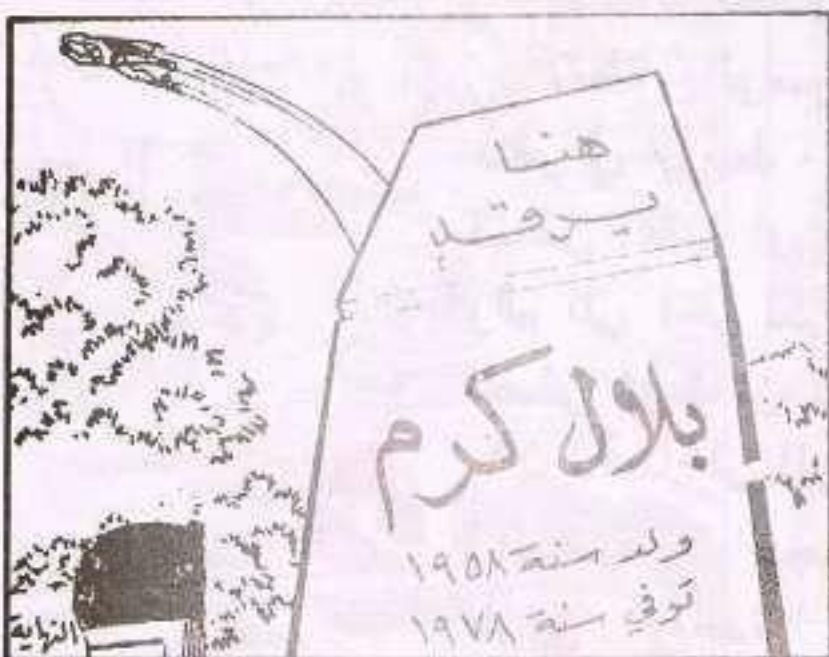 هنا
يرقد
بلال كرم
ولد سنة ١٩٥٨
توفي سنة ١٩٧٨
النهاية